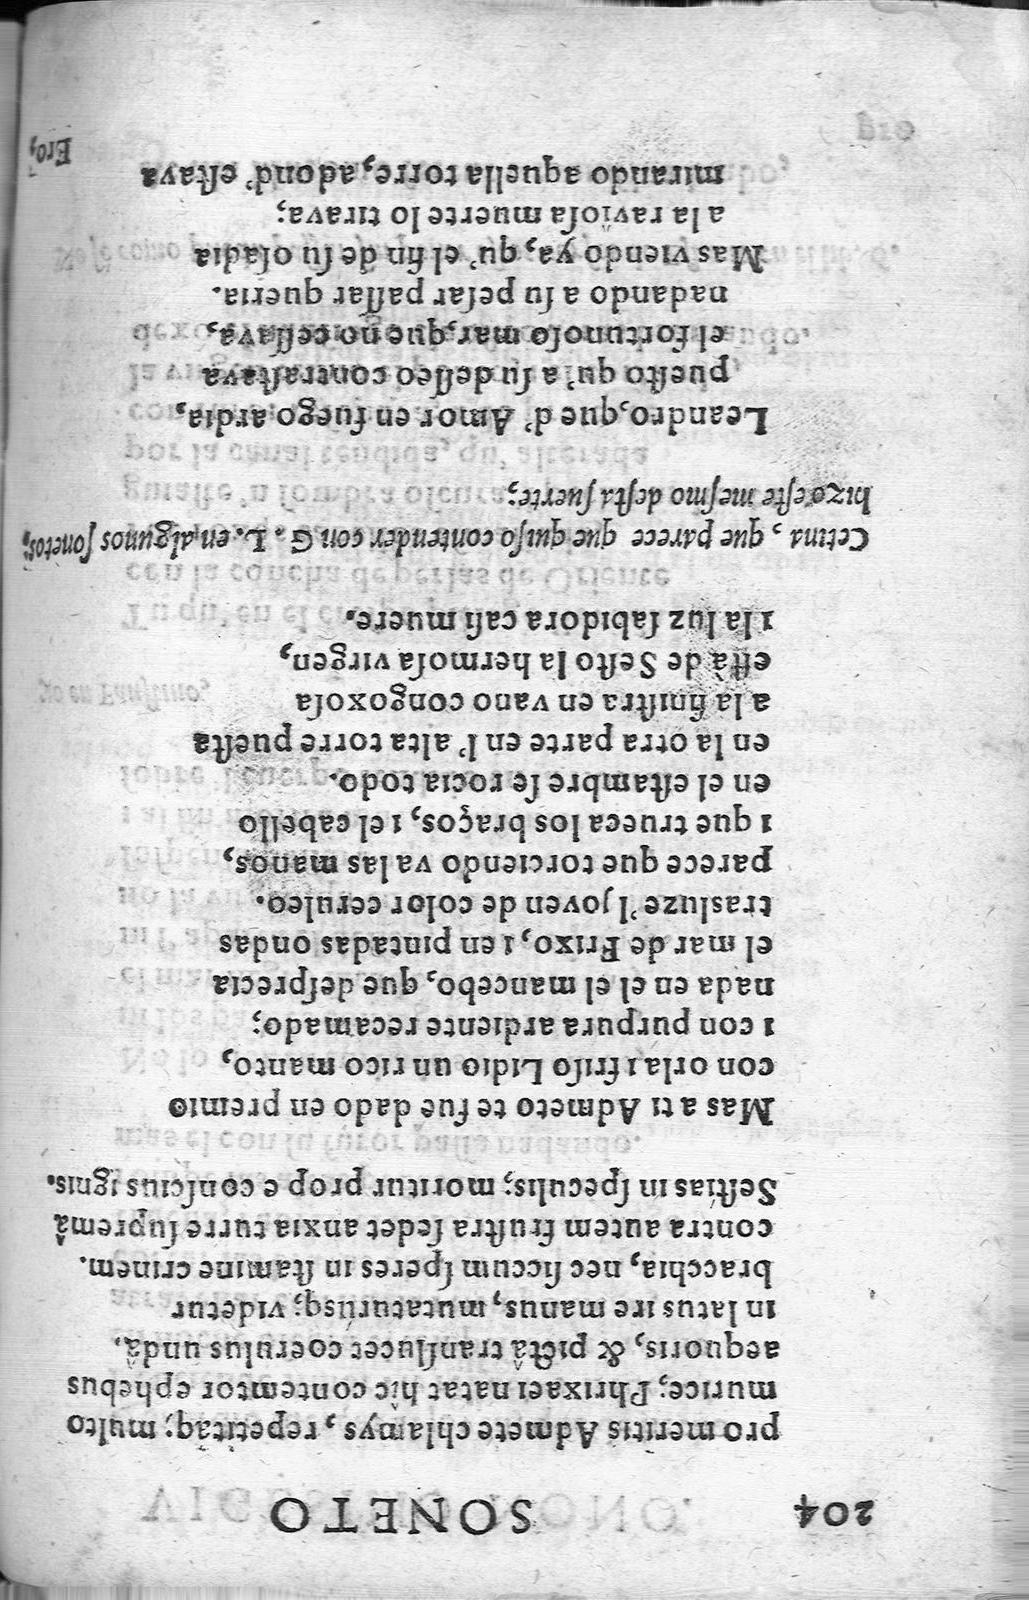 204 SONETO
pro meritis Admete chlamys, repetitaq; multo
murice; Phrixaei natat hîc contemtor ephebus
aequoris, & pictâ transſlucet coerulus undâ.
in latus ire manus, mutaturúsq; videtur
bracchia, nec ſiccum ſperes in ſtamine crinem.
contra autem fruſtra ſedet anxia turre ſupremâ
Seſtias in ſpeculis; moritur prope conſcius ignis.
Mas a ti Admeto te fue dado en premio
con orla i friſo Lidio un rico manto,
i con purpura ardiente recamado;
nada en el el mancebo, que deſprecia
el mar de Frixo, i en pintadas ondas
trasluze 'l joven de color ceruleo.
parece que torciendo va las manos,
i que trueca los braços, i el cabello
en el eſtambre ſe rocia todo.
en la otra parte en l' alta torre pueſta
a la ſiniſtra en vano congoxoſa
eſtâ de Seſto la hermoſa virgen,
i la luz ſabidora caſi muere.
Cetina, que parece que quiſo contender con G. L. en algunos ſonetos,
hizo eſte meſmo deſta ſuerte;
Leandro, que d' Amor en fuego ardia,
pueſto qu' a ſu deſſeo contraſtava
el fortunoſo mar, que no ceſſava,
nadando a ſu peſar paſſar queria.
Mas viendo ya, qu' el fin de ſu oſadia
a la ravioſa muerte lo tirava;
mirando aquella torre, adond' eſtava
Ero,